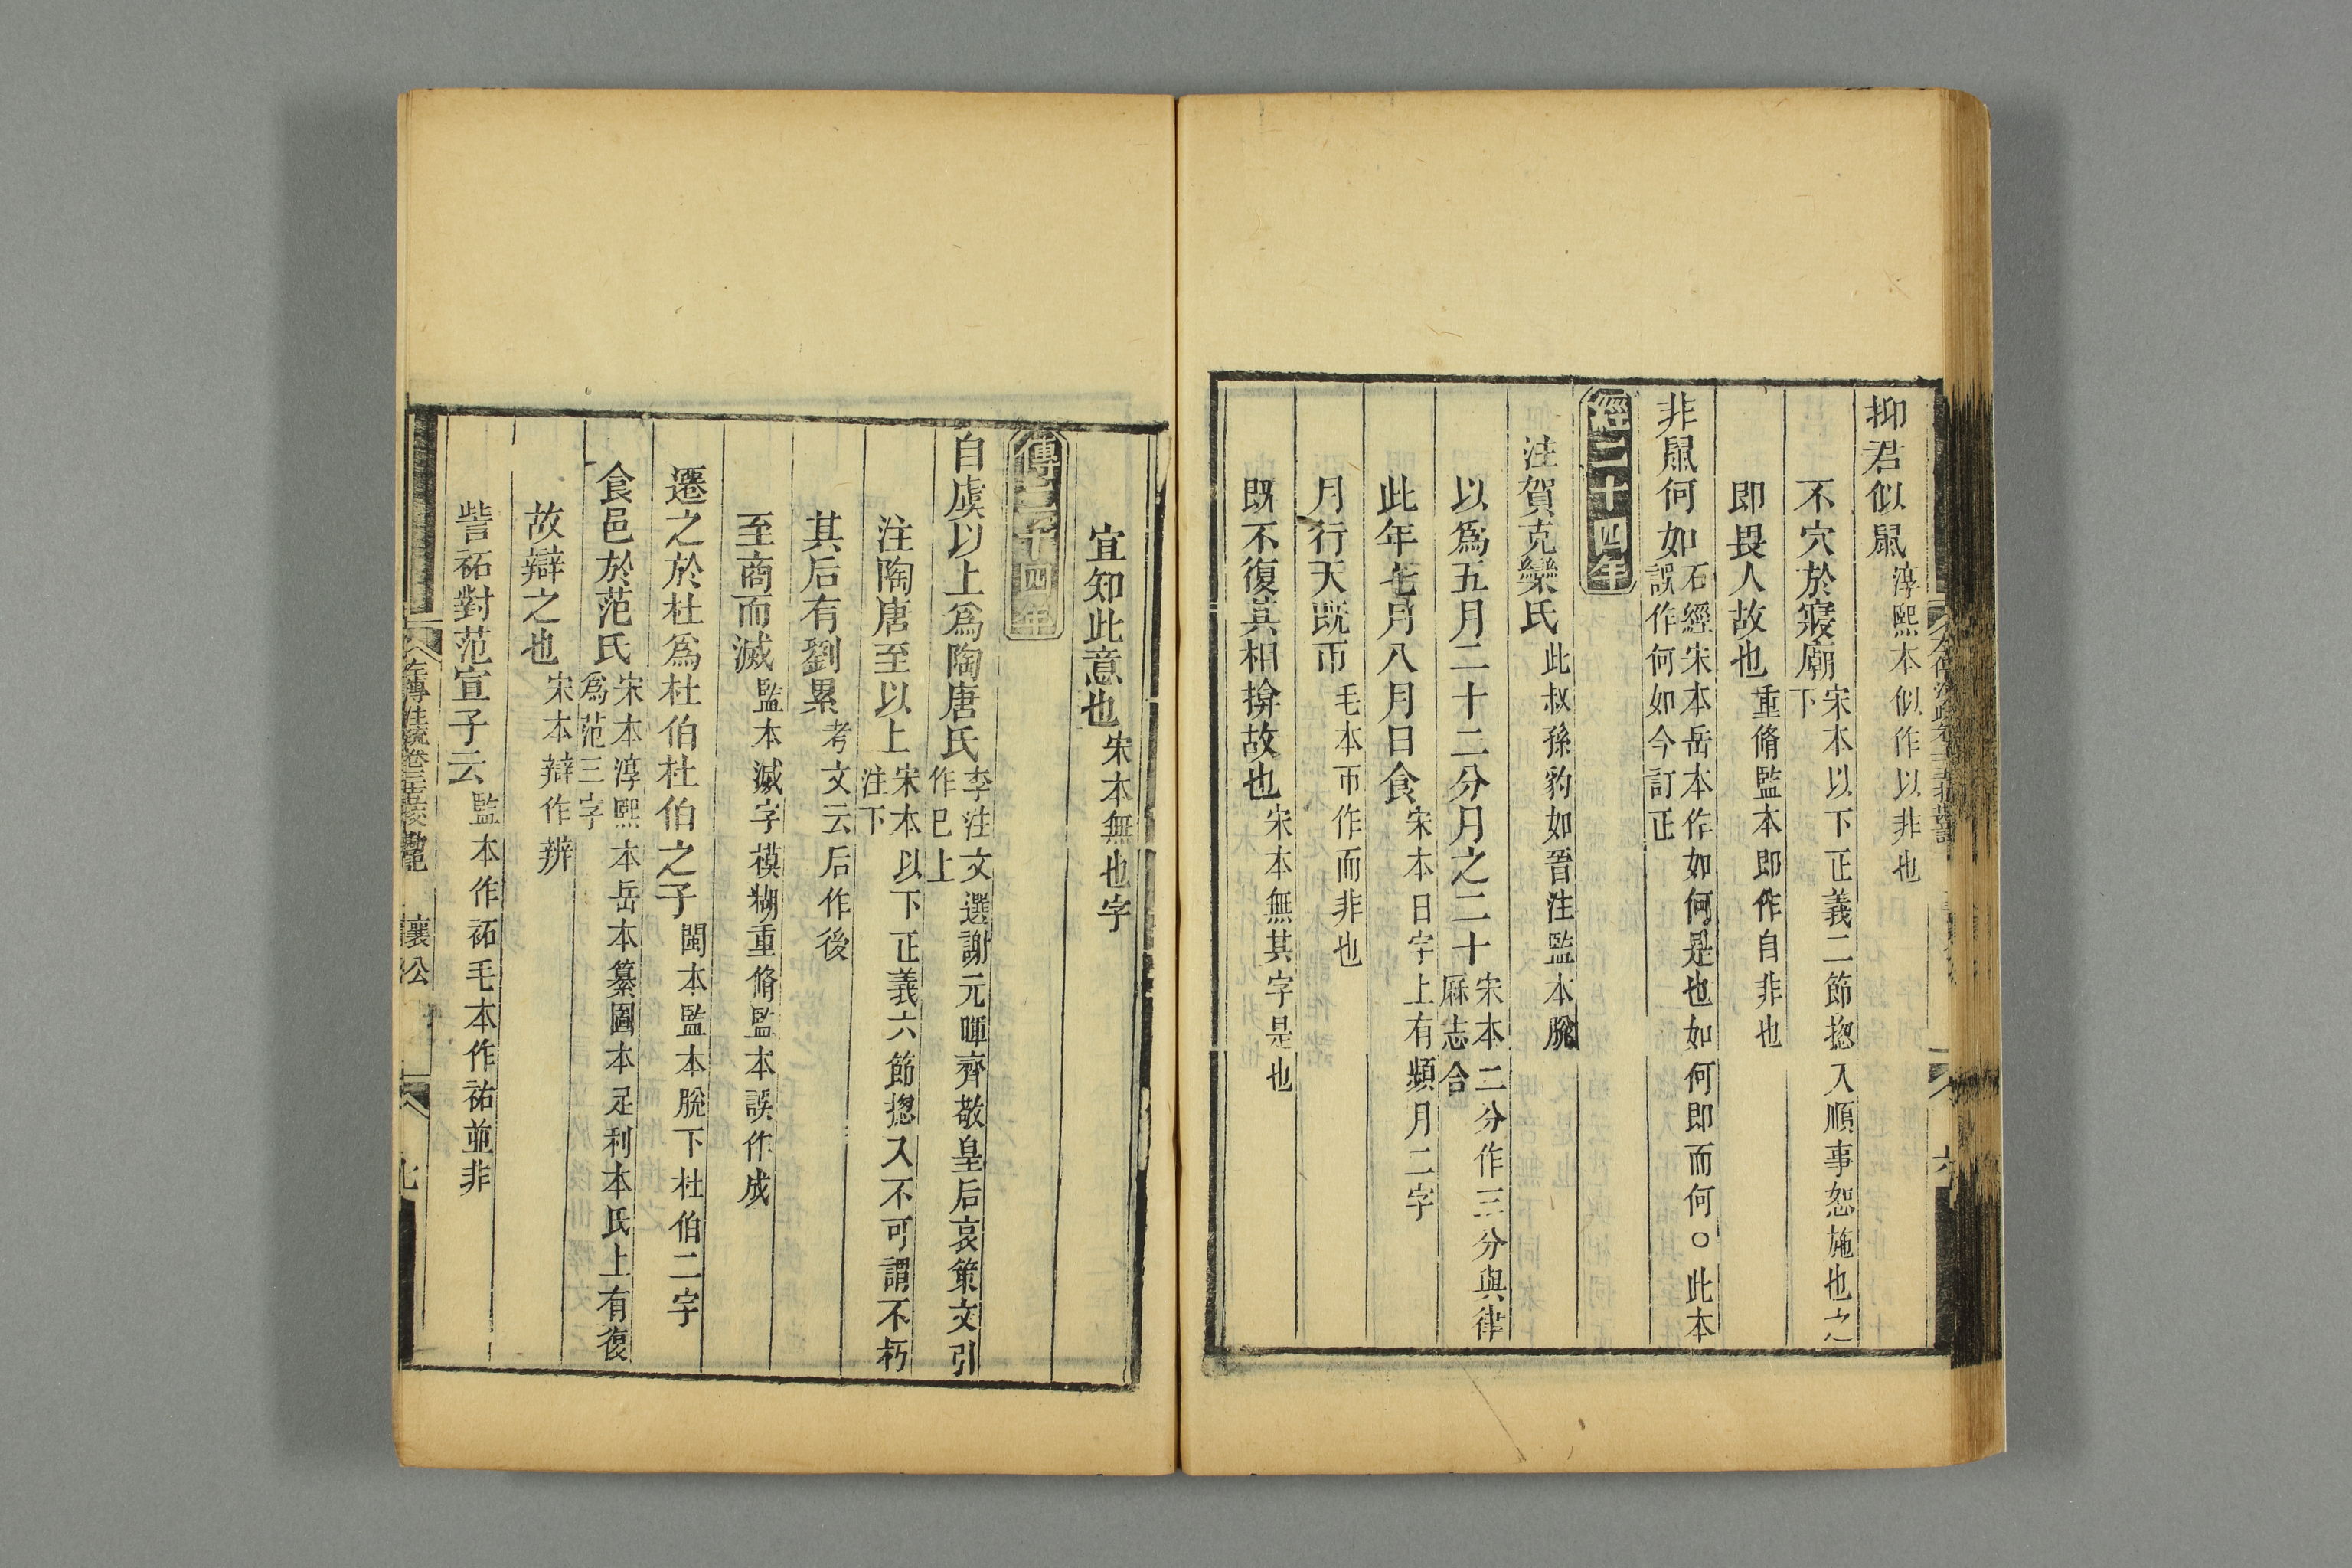 抑君似鼠淳熙本似作以非也
不穴於寢廟宋本以下正義二節揔入順事恕施也之下
即畏人故也重脩監本即作自非也
非鼠何如石經宋本岳本作如何是也如何即而何○此本誤作何如今訂正
經二十四年
注賀克欒氏此叔孫豹如晉注監本脫
以爲五月二十二分月之二十宋本二分作三分與律厤志合
此年七月八月日食宋本日字上有頻月二字
月行天既帀毛本帀作而非也
既不復其相揜故也宋本無其字是也
宜知此意也宋本無也字
傳二十四年
自虞以上爲陶唐氏李注文選謝元暉齊敬皇后哀策文引作已上
注陶唐至以上宋本以下正義六節揔入不可謂不朽注下
其后有劉累考文云后作後
至商而滅監本滅字模糊重脩監本誤作成
遷之於杜爲杜伯杜伯之子閩本監本脫下杜伯二字
食邑於范氏宋本淳熙本岳本纂圖本足利本氏上有復爲范三字
故辯之也宋本辯作辨
訾祏對范宣子云監本作祏毛本作祐並非
襄公